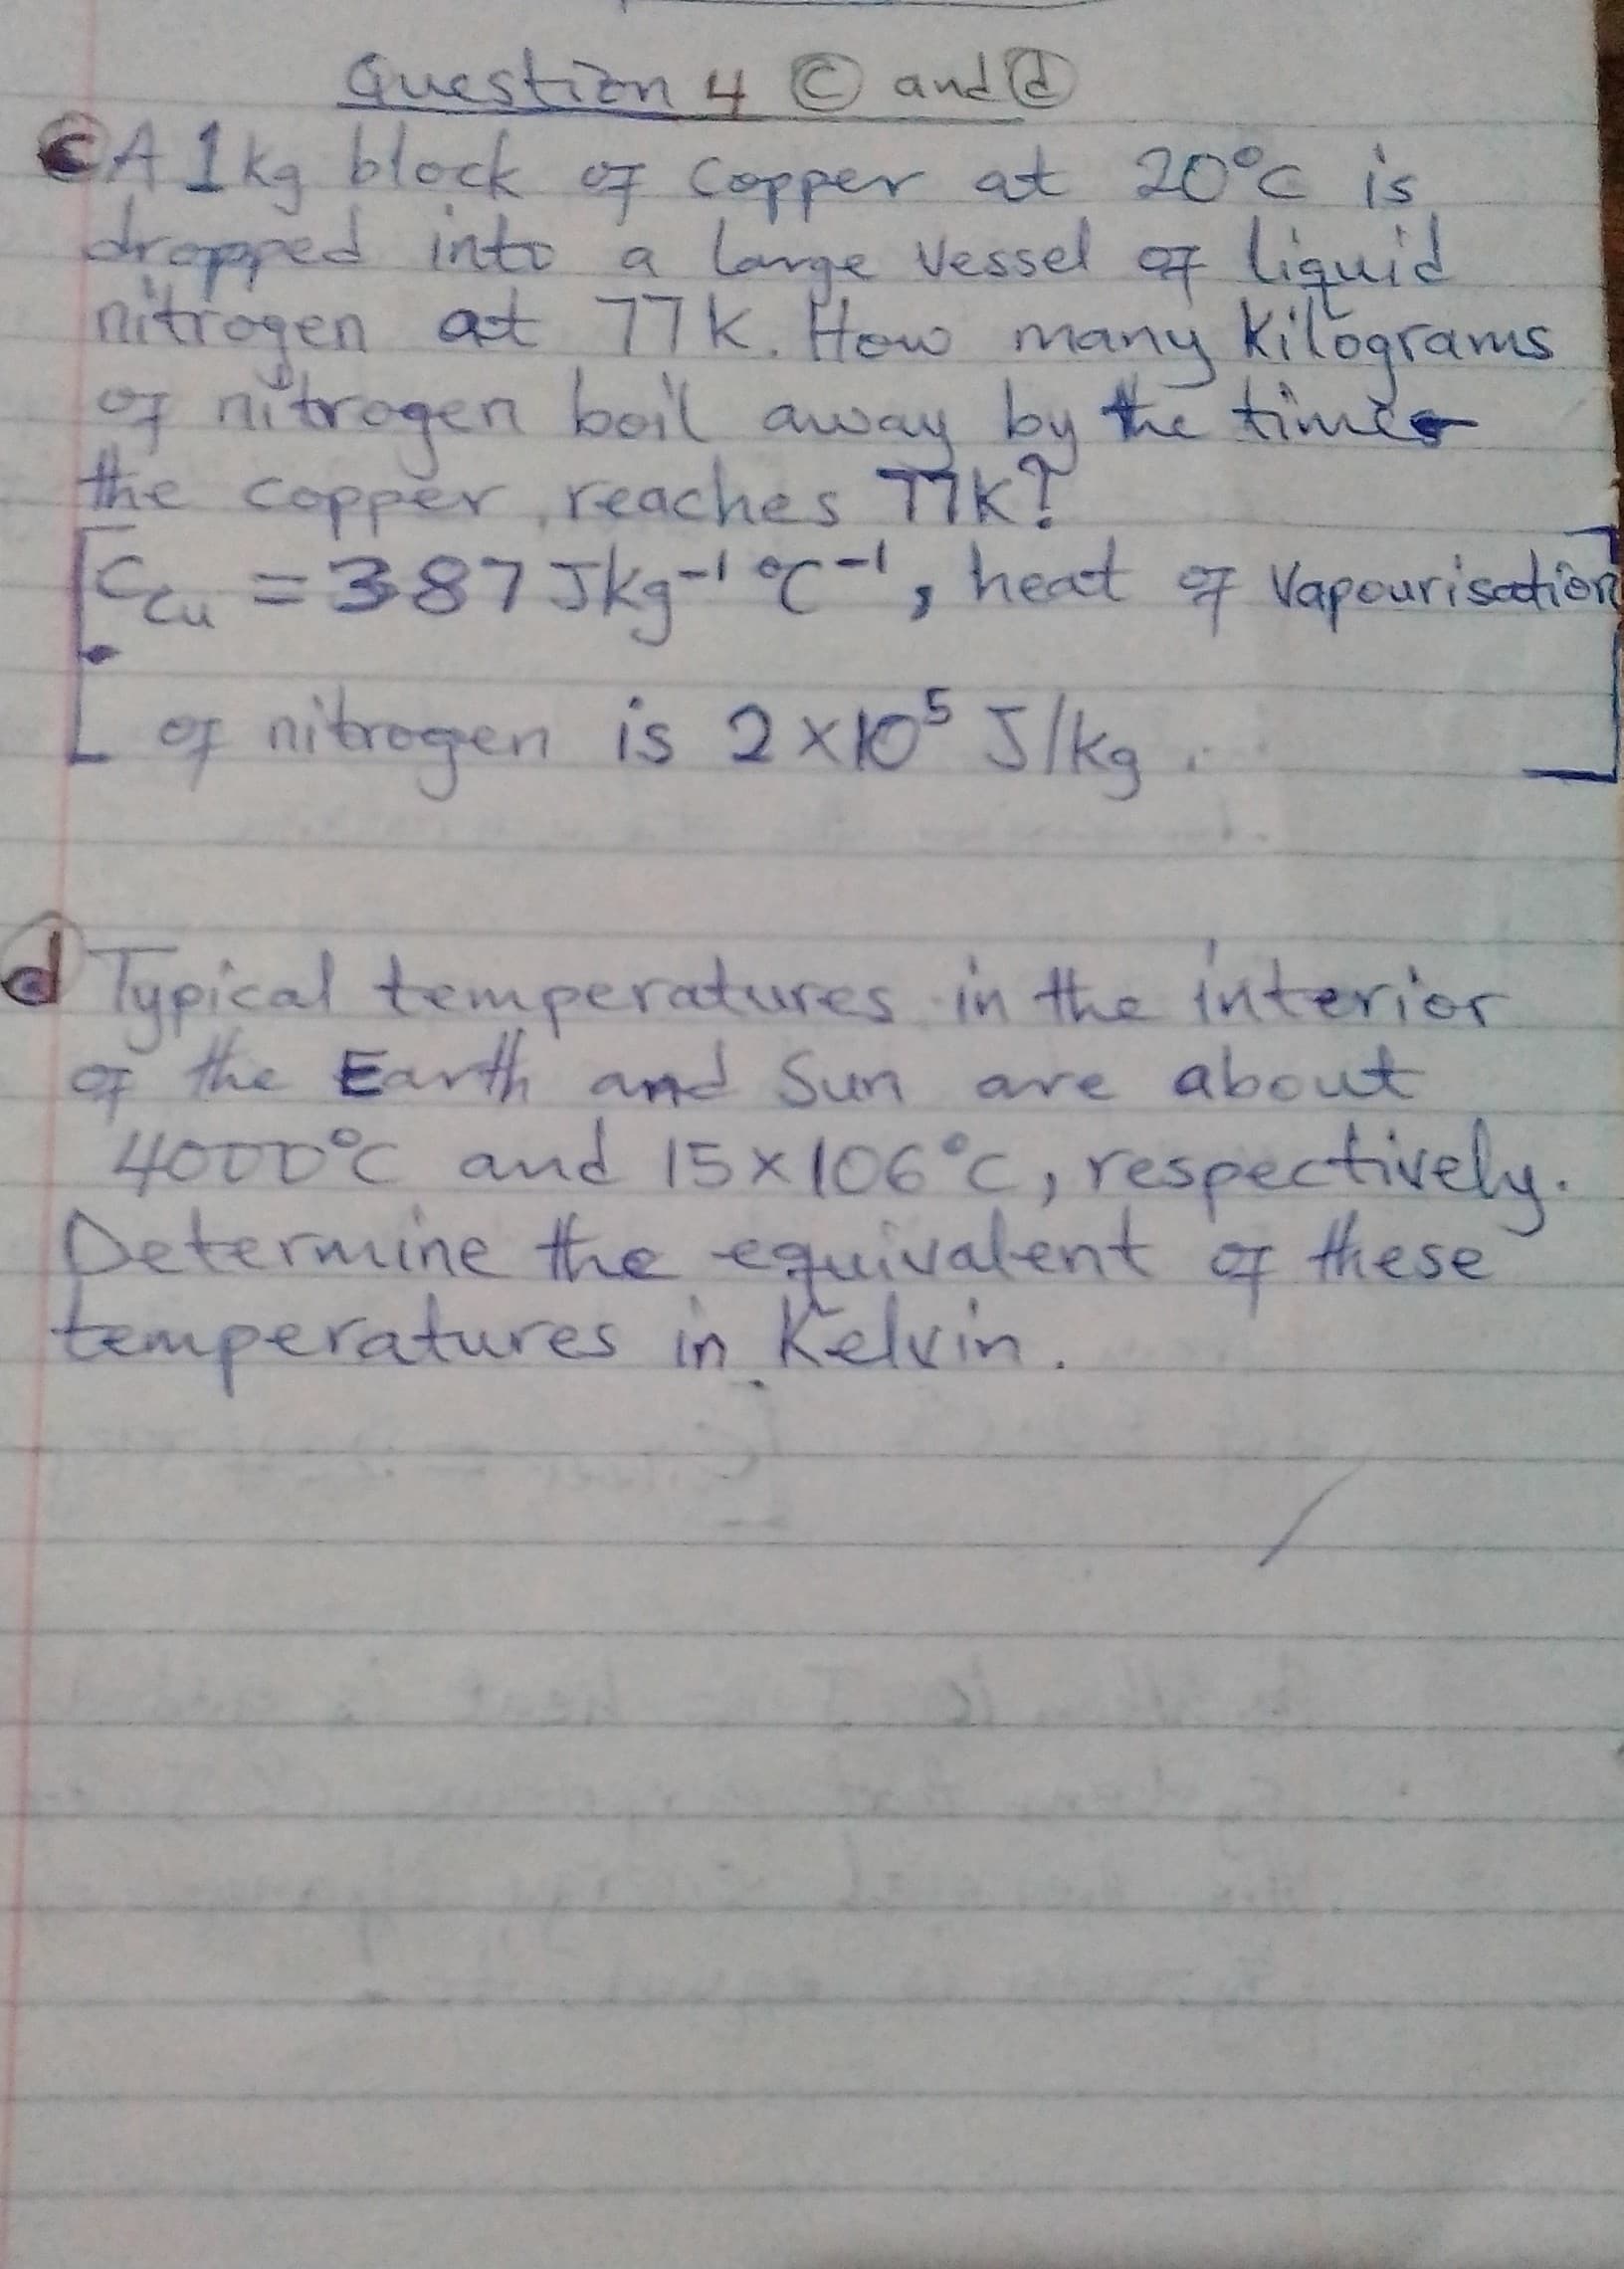 Question 4 (c) and (d)
(c) A 1kg block of copper at 20°C is
dropped into a large vessel of liquid
nitrogen at 77K. How many kilograms
of nitrogen boil away by the time
the copper reaches 77K?
[C_Cu = 387 Jkg⁻¹ °C⁻¹, heat of vapourisation
of nitrogen is 2×10⁵ J/kg.]
(d) Typical temperatures in the interior
of the Earth and Sun are about
4000°C and 15×106°C, respectively.
Determine the equivalent of these
temperatures in Kelvin.